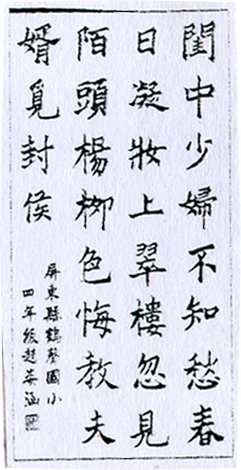 閨中少婦不知愁春
日凝妝上翠樓忽見
陌頭楊柳色悔教夫
婿覓封侯
屏東縣鶴聲國小
四年 趙 涵